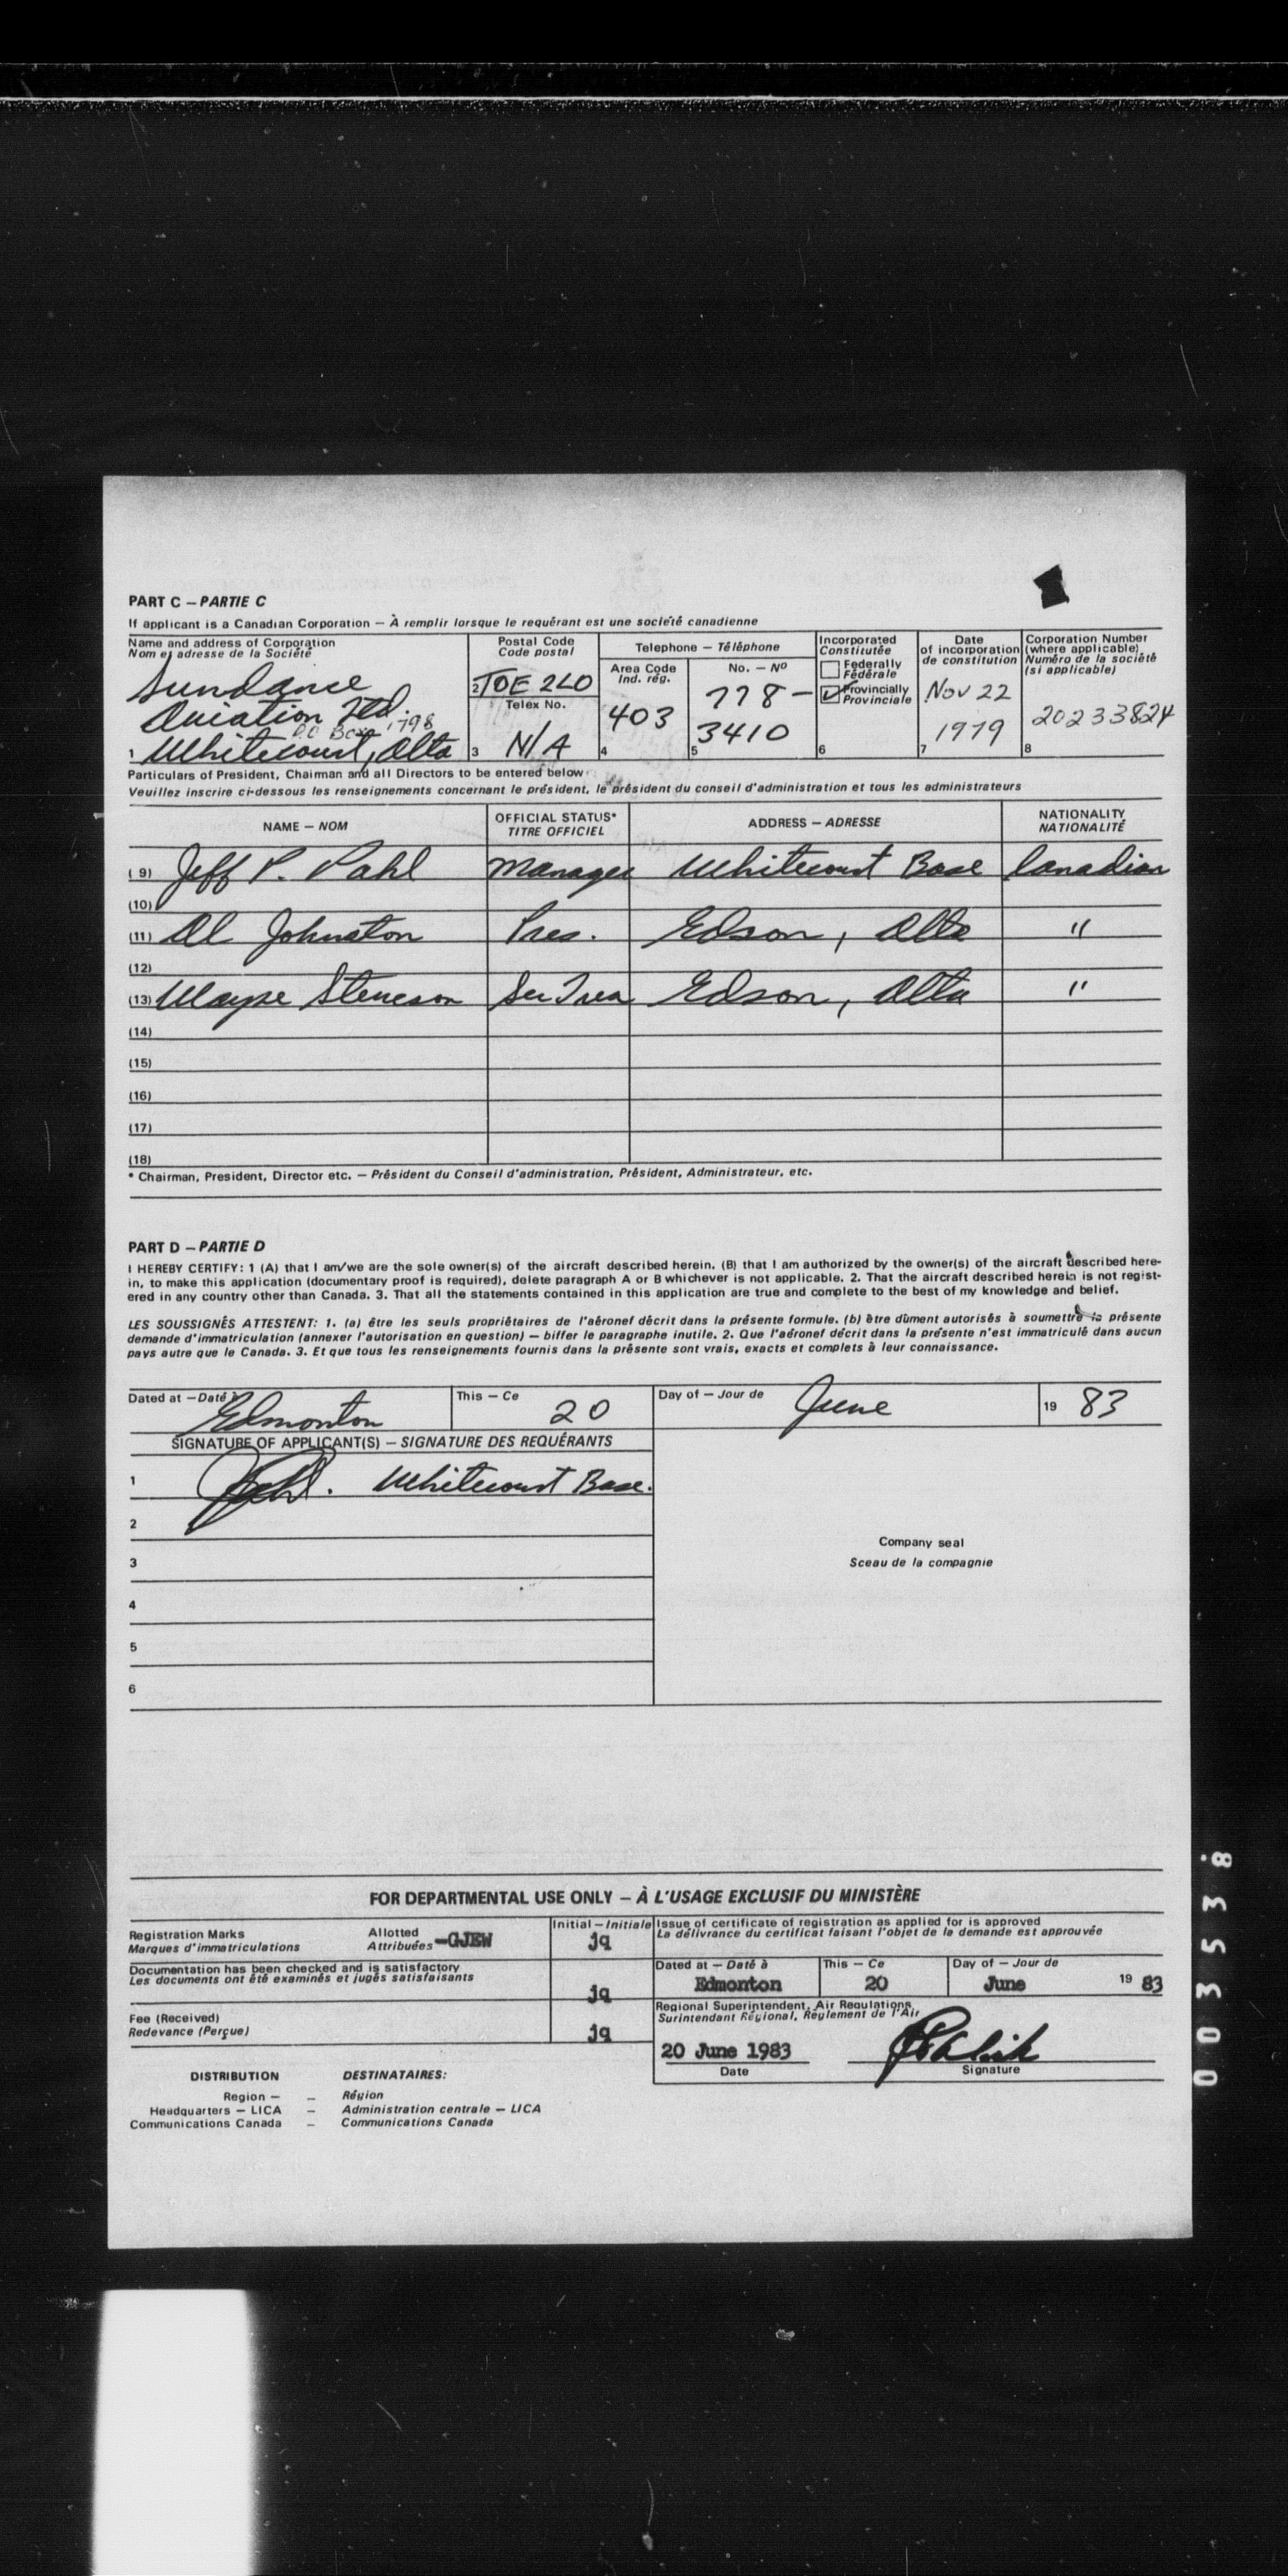 PART C – PARTIE C
If applicant is a Canadian Corporation – À remplir lorsque le requérant est une société canadienne
Name and address of Corporation
Nom et adresse de la Société
Sundance
Aviation Ltd.
P.O Box 1798
1 Whitecourt, Alta
Postal Code
Code postal
2 TOE 2LO
Telex No.
3 N/A
Telephone – Téléphone
Area Code
Ind. rég.
403
4
No. – Nº
778 –
3410
5
Incorporated
Constituée
Federally
Fédérale
Provincially
Provinciale
6
Date
of incorporation
de constitution
Nov 22
1979
7
Corporation Number
(where applicable)
Numéro de la société
(si applicable)
20233824
8
Particulars of President, Chairman and all Directors to be entered below
Veuillez inscrire ci-dessous les renseignements concernant le président, le président du conseil d'administration et tous les administrateurs
NAME – NOM OFFICIAL STATUS* TITRE OFFICIEL ADDRESS – ADRESSE NATIONALITY NATIONALITÉ
(9) Jeff P. Pahl Manager Whitecourt Base Canadian
(10)
(11) Al Johnston Pres. Edson, Alta "
(12)
(13) Wayne Steneson Sec Trea Edson, Alta "
(14)
(15)
(16)
(17)
(18)
* Chairman, President, Director etc. – Président du Conseil d'administration, Président, Administrateur, etc.
PART D – PARTIE D
I HEREBY CERTIFY: 1 (A) that I am/we are the sole owner(s) of the aircraft described herein. (B) that I am authorized by the owner(s) of the aircraft described here-
in, to make this application (documentary proof is required), delete paragraph A or B whichever is not applicable. 2. That the aircraft described herein is not regist-
ered in any country other than Canada. 3. That all the statements contained in this application are true and complete to the best of my knowledge and belief.
LES SOUSSIGNÉS ATTESTENT: 1. (a) être les seuls propriétaires de l'aéronef décrit dans la présente formule. (b) être dûment autorisés à soumettre la présente
demande d'immatriculation (annexer l'autorisation en question) – biffer le paragraphe inutile. 2. Que l'aéronef décrit dans la présente n'est immatriculé dans aucun
pays autre que le Canada. 3. Et que tous les renseignements fournis dans la présente sont vrais, exacts et complets à leur connaissance.
Dated at – Daté à Edmonton This – Ce 20 Day of – Jour de June 19 83
SIGNATURE OF APPLICANT(S) – SIGNATURE DES REQUÉRANTS
1 Whitecourt Base.
2
3
4
5
6
Company seal
Sceau de la compagnie
FOR DEPARTMENTAL USE ONLY – À L'USAGE EXCLUSIF DU MINISTÈRE
Registration Marks
Marques d'immatriculations
Allotted
Attribuées –GJEW
Initial – Initiale
jq
Issue of certificate of registration as applied for is approved
La délivrance du certificat faisant l'objet de la demande est approuvée
Documentation has been checked and is satisfactory
Les documents ont été examinés et jugés satisfaisants
jq
Dated at – Daté à Edmonton This – Ce 20 Day of – Jour de June 19 83
Fee (Received)
Redevance (Perçue)
jq
Regional Superintendent, Air Regulations
Surintendant Régional, Règlement de l'Air
20 June 1983
Date
Signature
DISTRIBUTION DESTINATAIRES:
Region – – Région
Headquarters – LICA – Administration centrale – LICA
Communications Canada – Communications Canada
003538